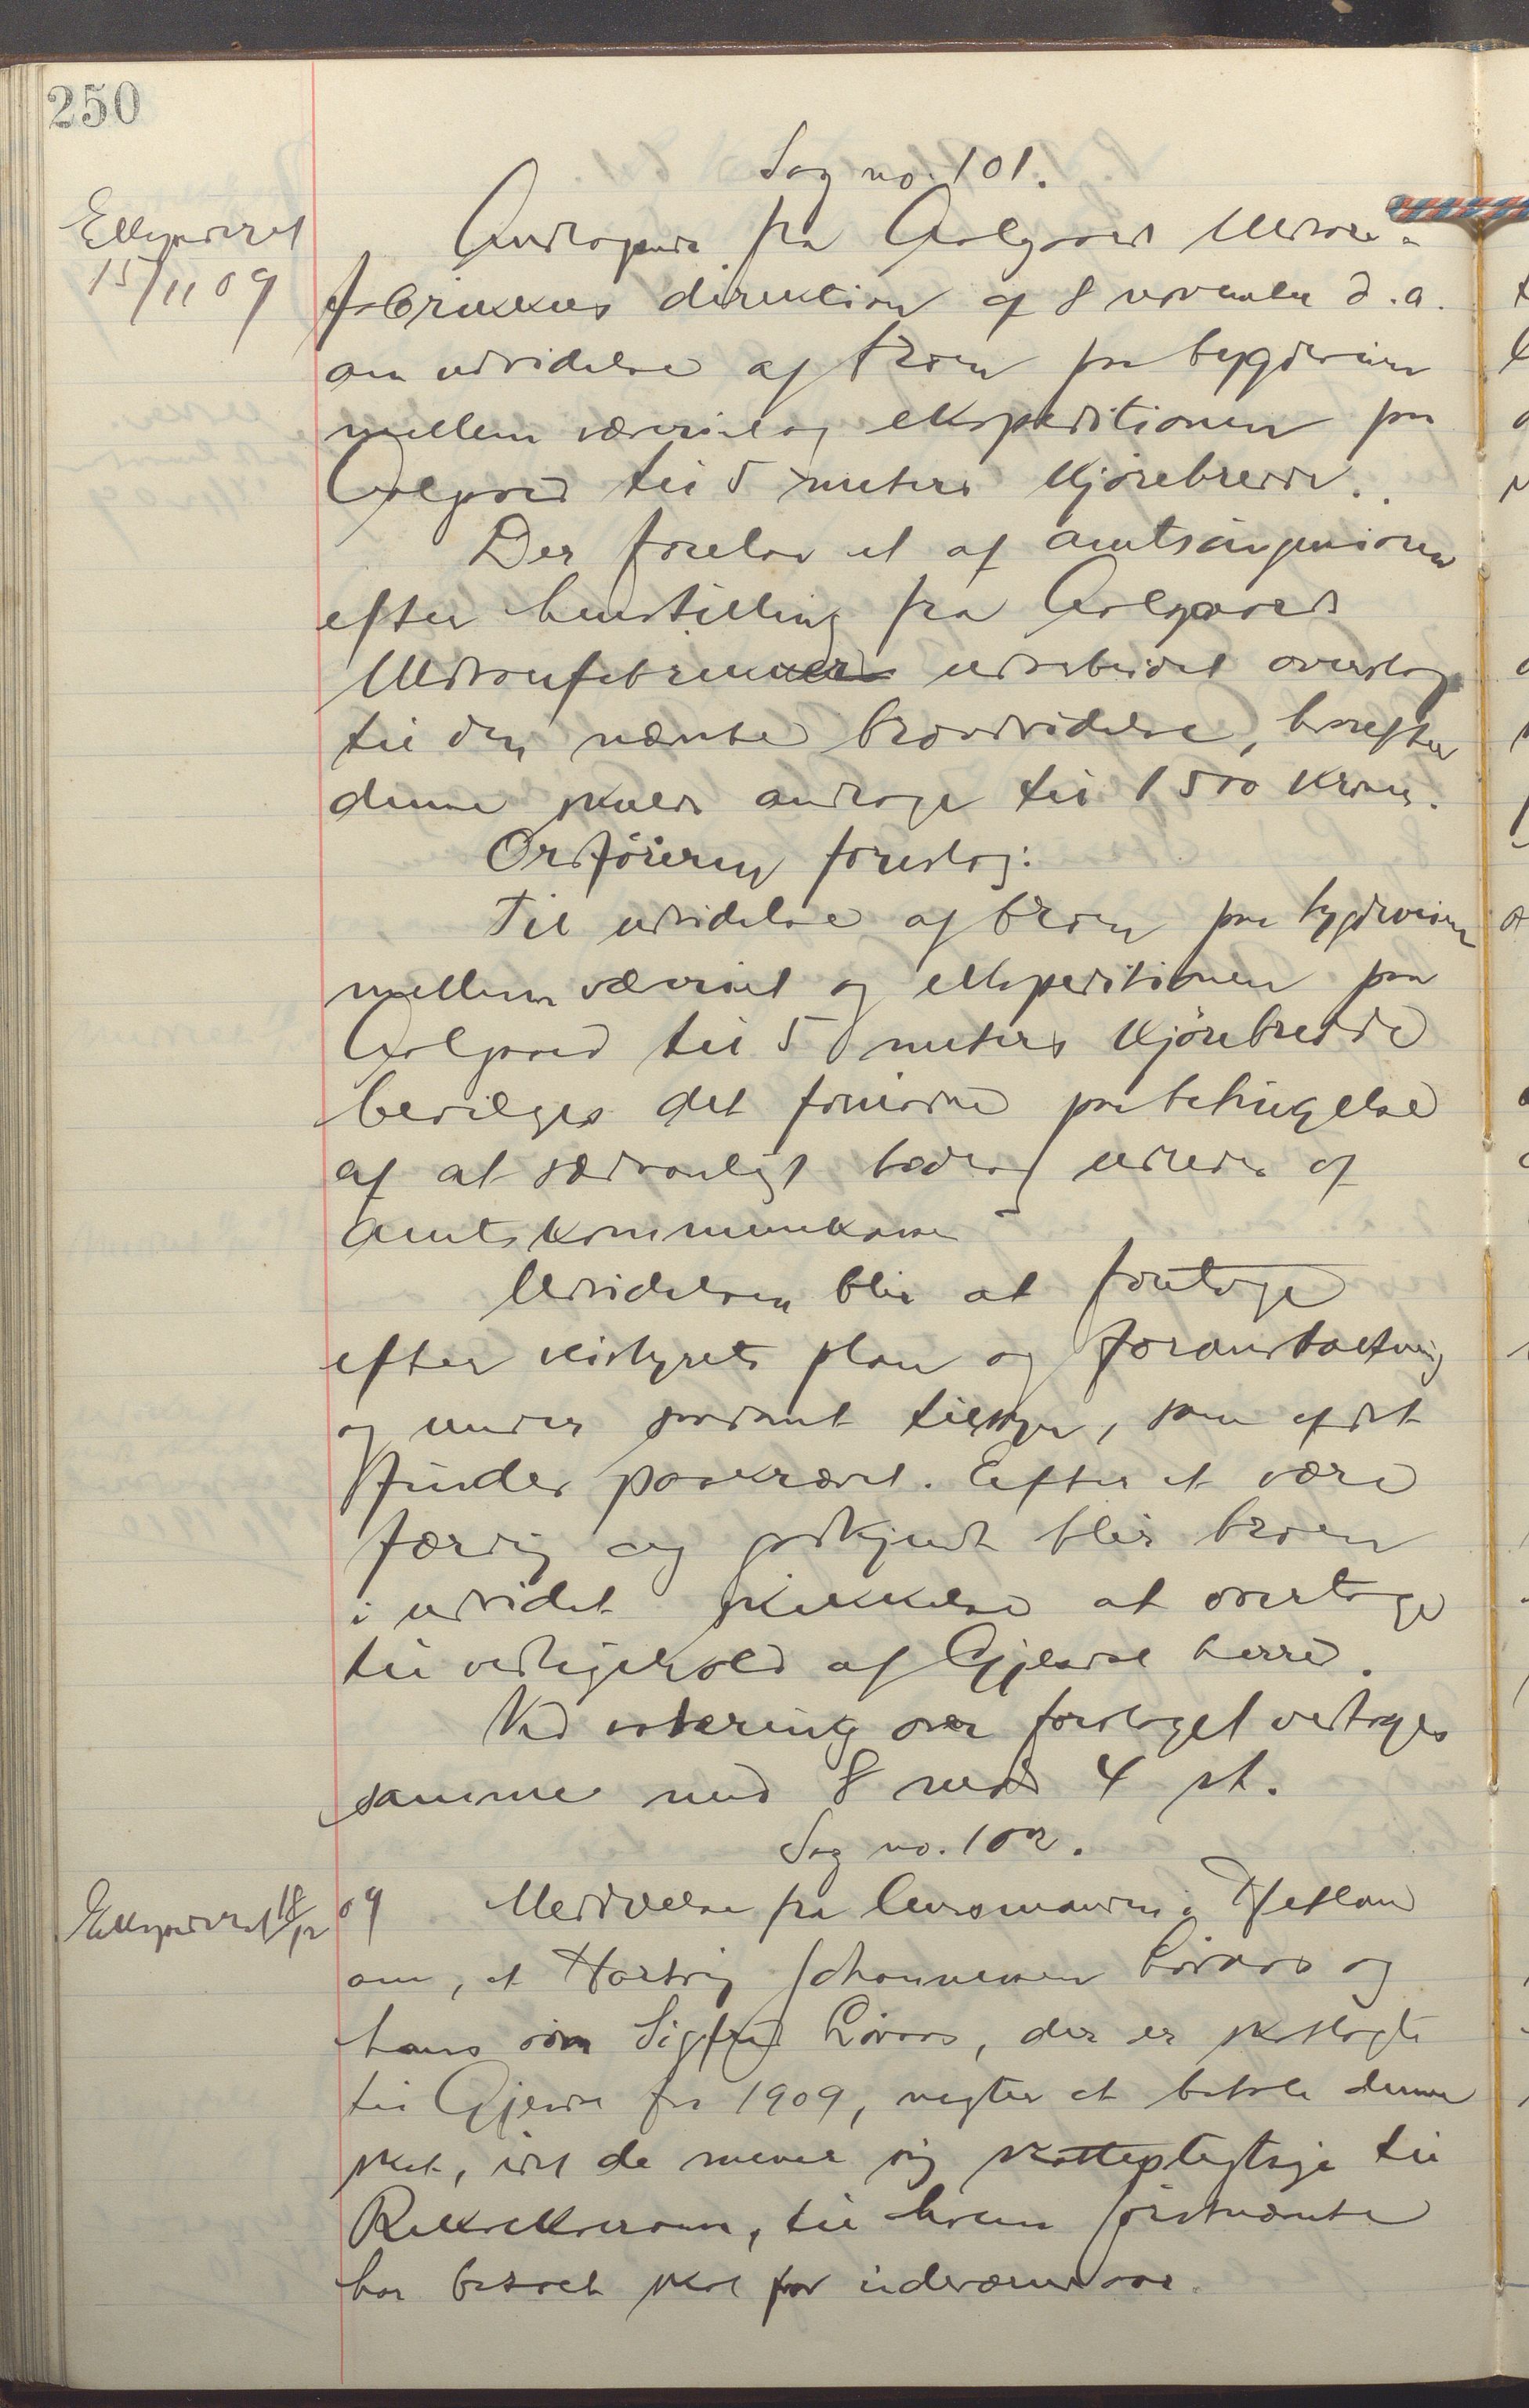 250
Sag no. 101.
Ekspederet
15/11 09
Andragende fra Aalgaard Uldvare-
fabrikkers direktion af 8 november d.a.
om udvidelse af broen paa bygdeveien
mellem væveriet og ekspeditionen paa
Aalgaard til 5 meters kjørebredde.
Der forelaa et af amtsingeniøren
efter henstilling fra Aalgaards
Uldvarefabrikker udarbeidet overslag
til den nævnte broudvidelse, hvorefter
denne skulde andrage til 1500 kroner.
Ordføreren foreslog:
Til udvidelse af broen paa bygdeveien
mellem væveriet og ekspeditionen paa
Aalgaard til 5 meters kjørebredde
bevilges det fornødne paa betingelse
af at sædvanligt bidrag udredes af
amtskommunekassen
Udvidelsen blir at foretage
efter veistyrets plan og foranstaltning
og under saadant tilsyn, som af det
findes paakrævet. Efter at være
færdig og godkjendt blir broen
i udvidet skikkelse at overtage
til vedligehold af Gjesdal herred.
Ved votering over forslaget vedtoges
samme med 8 mod 4 st.
Sag no. 102.
Ekspederet 18/12 09
Meddelelse fra lensmanden i Hetland
om, at Hartvig Johannessen Lövaas og
hans søn Sigfred Lövaas, der er skatlagte
til Gjesdal for 1909, negter at betale denne
skat, idet de mener sig skattepligtige til
Rekekvern, til hvem førstnævnte
har betalt skat for indeværende aar.